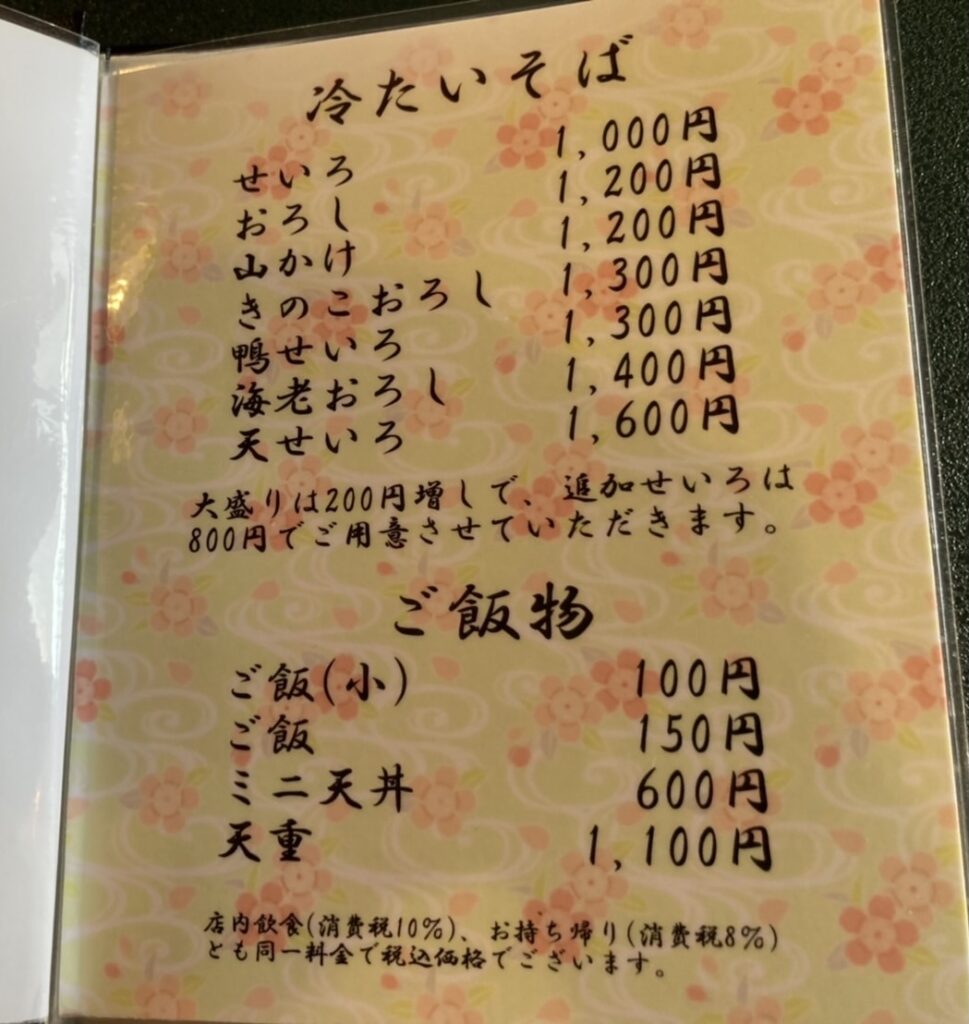 冷たいそば
せいろ 1,000円
おろし 1,200円
山かけ 1,200円
きのこおろし 1,300円
鴨せいろ 1,300円
海老おろし 1,400円
天せいろ 1,600円
大盛りは200円増しで、追加せいろは
800円でご用意させていただきます。
ご飯物
ご飯(小) 100円
ご飯 150円
ミニ天丼 600円
天重 1,100円
店内飲食(消費税10%)、お持ち帰り(消費税8%)
とも同一料金で税込価格でございます。